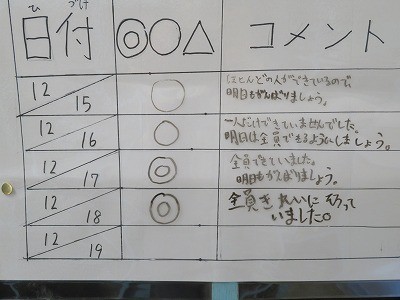 ひ づけ
日付 ◎○△ コメント
12/15 ○ ほとんどの人ができているので、
明日もがんばりましょう。
12/16 ○ 一人だけできていませんでした。
明日は全員できるようにしましょう。
12/17 ◎ 全員できていました。
明日もがんばりましょう。
12/18 ◎ 全員きれいに
いました。
12/19